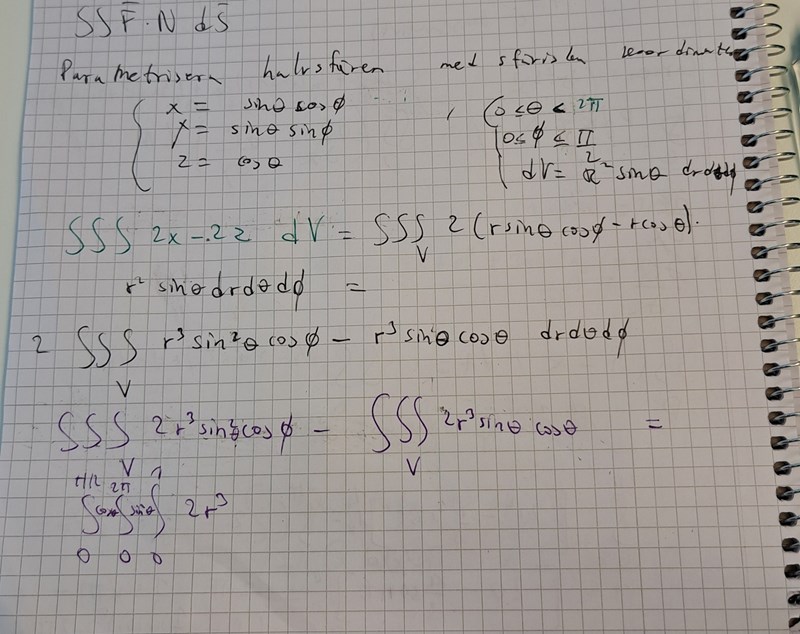 SS F̄·N dS̄
Parametrisera halvsfären med sfäriska koordinater
x = sinθ cosϕ , 0 ≤ θ < 2π
y = sinθ sinϕ 0 ≤ ϕ ≤ π
z = cosθ dV = r² sinθ dr dθ dϕ
∫∫∫ 2x - 2z dV = ∫∫∫_V 2 (r sinθ cosϕ - r cosθ)·
r² sinθ dr dθ dϕ =
2 ∫∫∫_V r³ sin²θ cosϕ - r³ sinθ cosθ dr dθ dϕ
∫∫∫_V 2r³ sin²θ cosϕ - ∫∫∫_V 2r³ sinθ cosθ =
∫_0^{π/2} cosϕ ∫_0^{2π} sinθ ∫_0^1 2r³